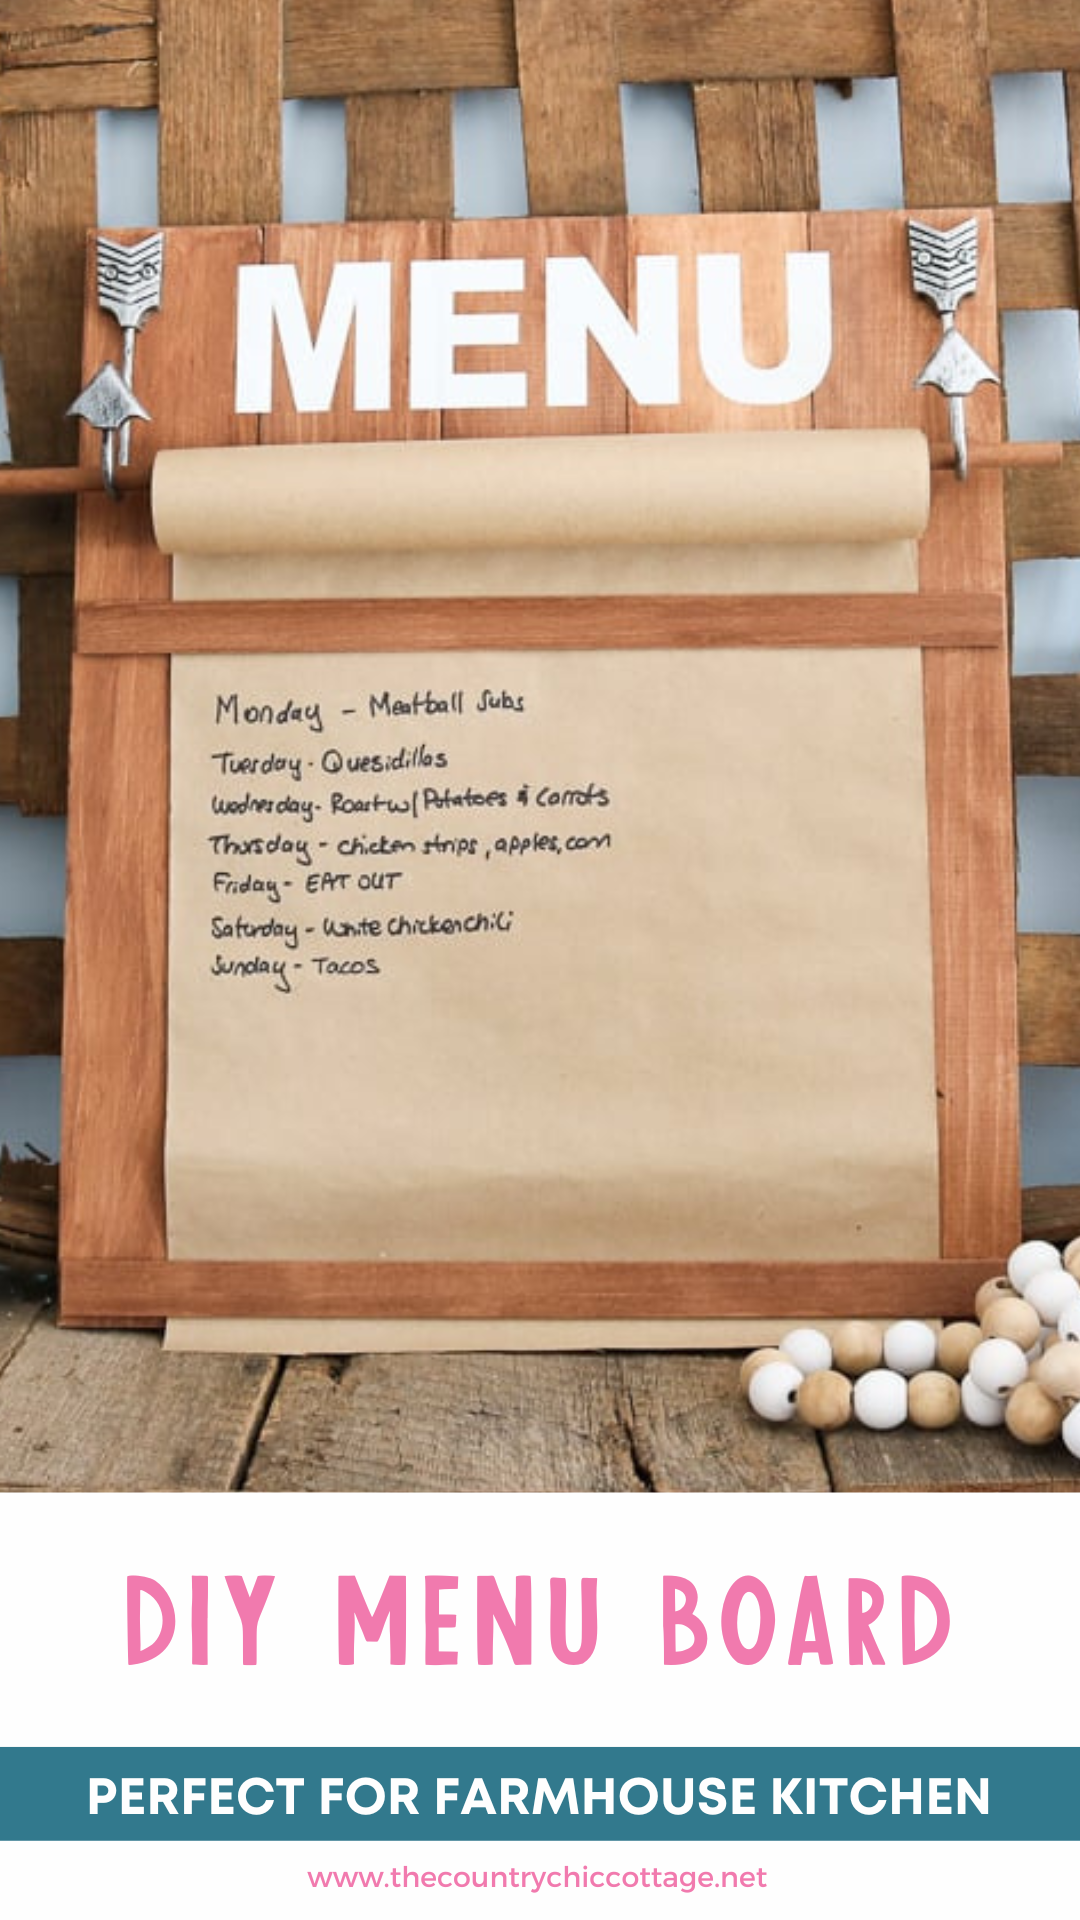 MENU
Monday - Meatball Subs
Tuesday - Quesidillas
Wednesday - Roast w/ Potatoes & Carrots
Thursday - chicken strips, apples, corn
Friday - EAT OUT
Saturday - White Chicken chili
Sunday - Tacos
DIY MENU BOARD
PERFECT FOR FARMHOUSE KITCHEN
www.thecountrychiccottage.net